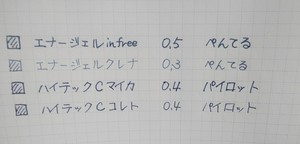 エナージェル infree 0.5 ぺんてる
エナージェルクレナ 0.3 ぺんてる
ハイテックCマイカ 0.4 パイロット
ハイテックCコレト 0.4 パイロット